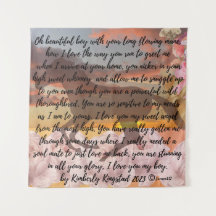 Oh beautiful boy with your long flowing mane
how I love the way you run to greet me
when I arrive at your home, you nicker in your
high sweet whinney and allow me to snuggle up
to you even though you are a powerful wild
thoroughbred. You are so sensitive to my needs
as I am to yours. I love you my sweet angel
from the most high. You have really gotten me
through some days where I really needed a
soul mate to just love me back, you are stunning
in all your glory, I love you my boy.
by Kimberly Ringstad 2023 ©